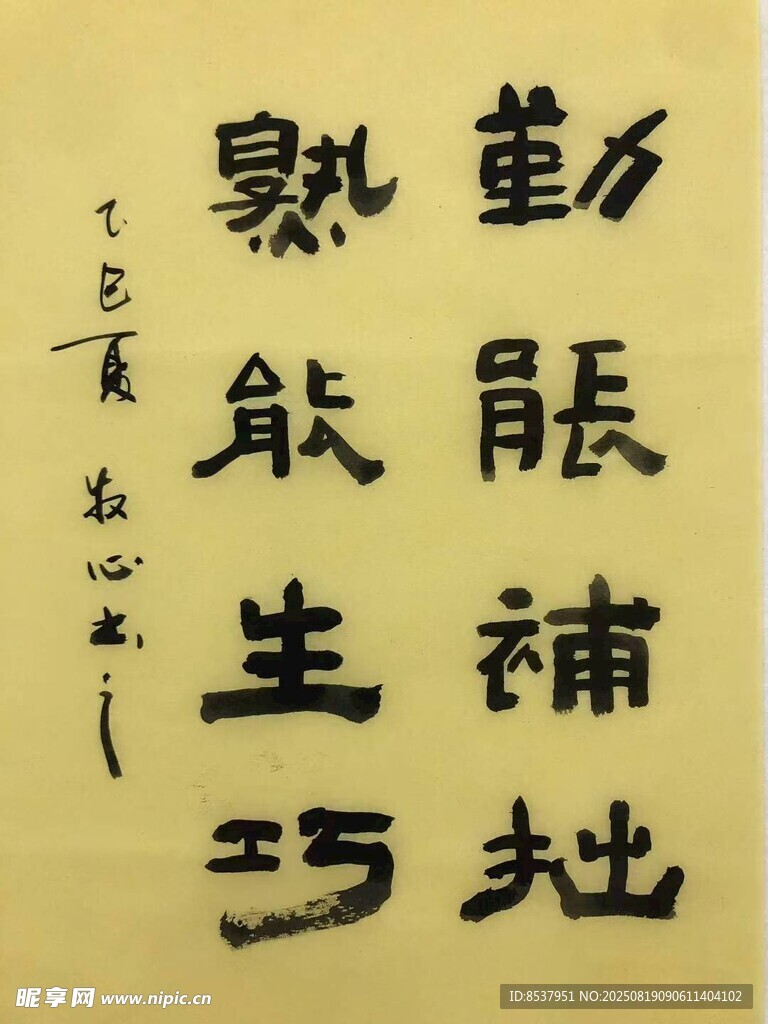 勤能補拙
熟能生巧
乙巳夏 牧心书之
昵享网 www.nipic.cn
ID:8537951 NO:20250819090611404102